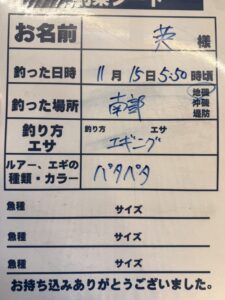 釣果シート
お名前 英 様
釣った日時 11月15日5:50時頃
釣った場所 南部 地磯
沖磯
堤防
釣り方 釣り方 エサ
エサ エギング
ルアー、エギの
種類・カラー ペタペタ
魚種 サイズ
魚種 サイズ
魚種 サイズ
お持ち込みありがとうございました。